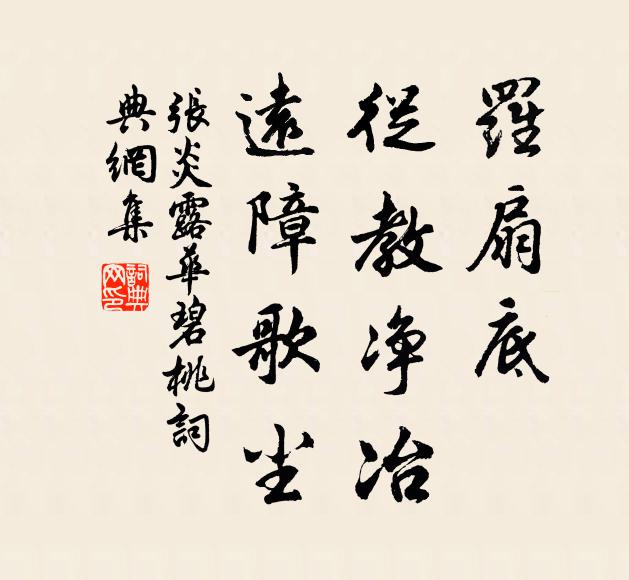 羅扇底
從教净冶
遠障歌尘
張炎露華碧桃詞
典網集
詞典网印